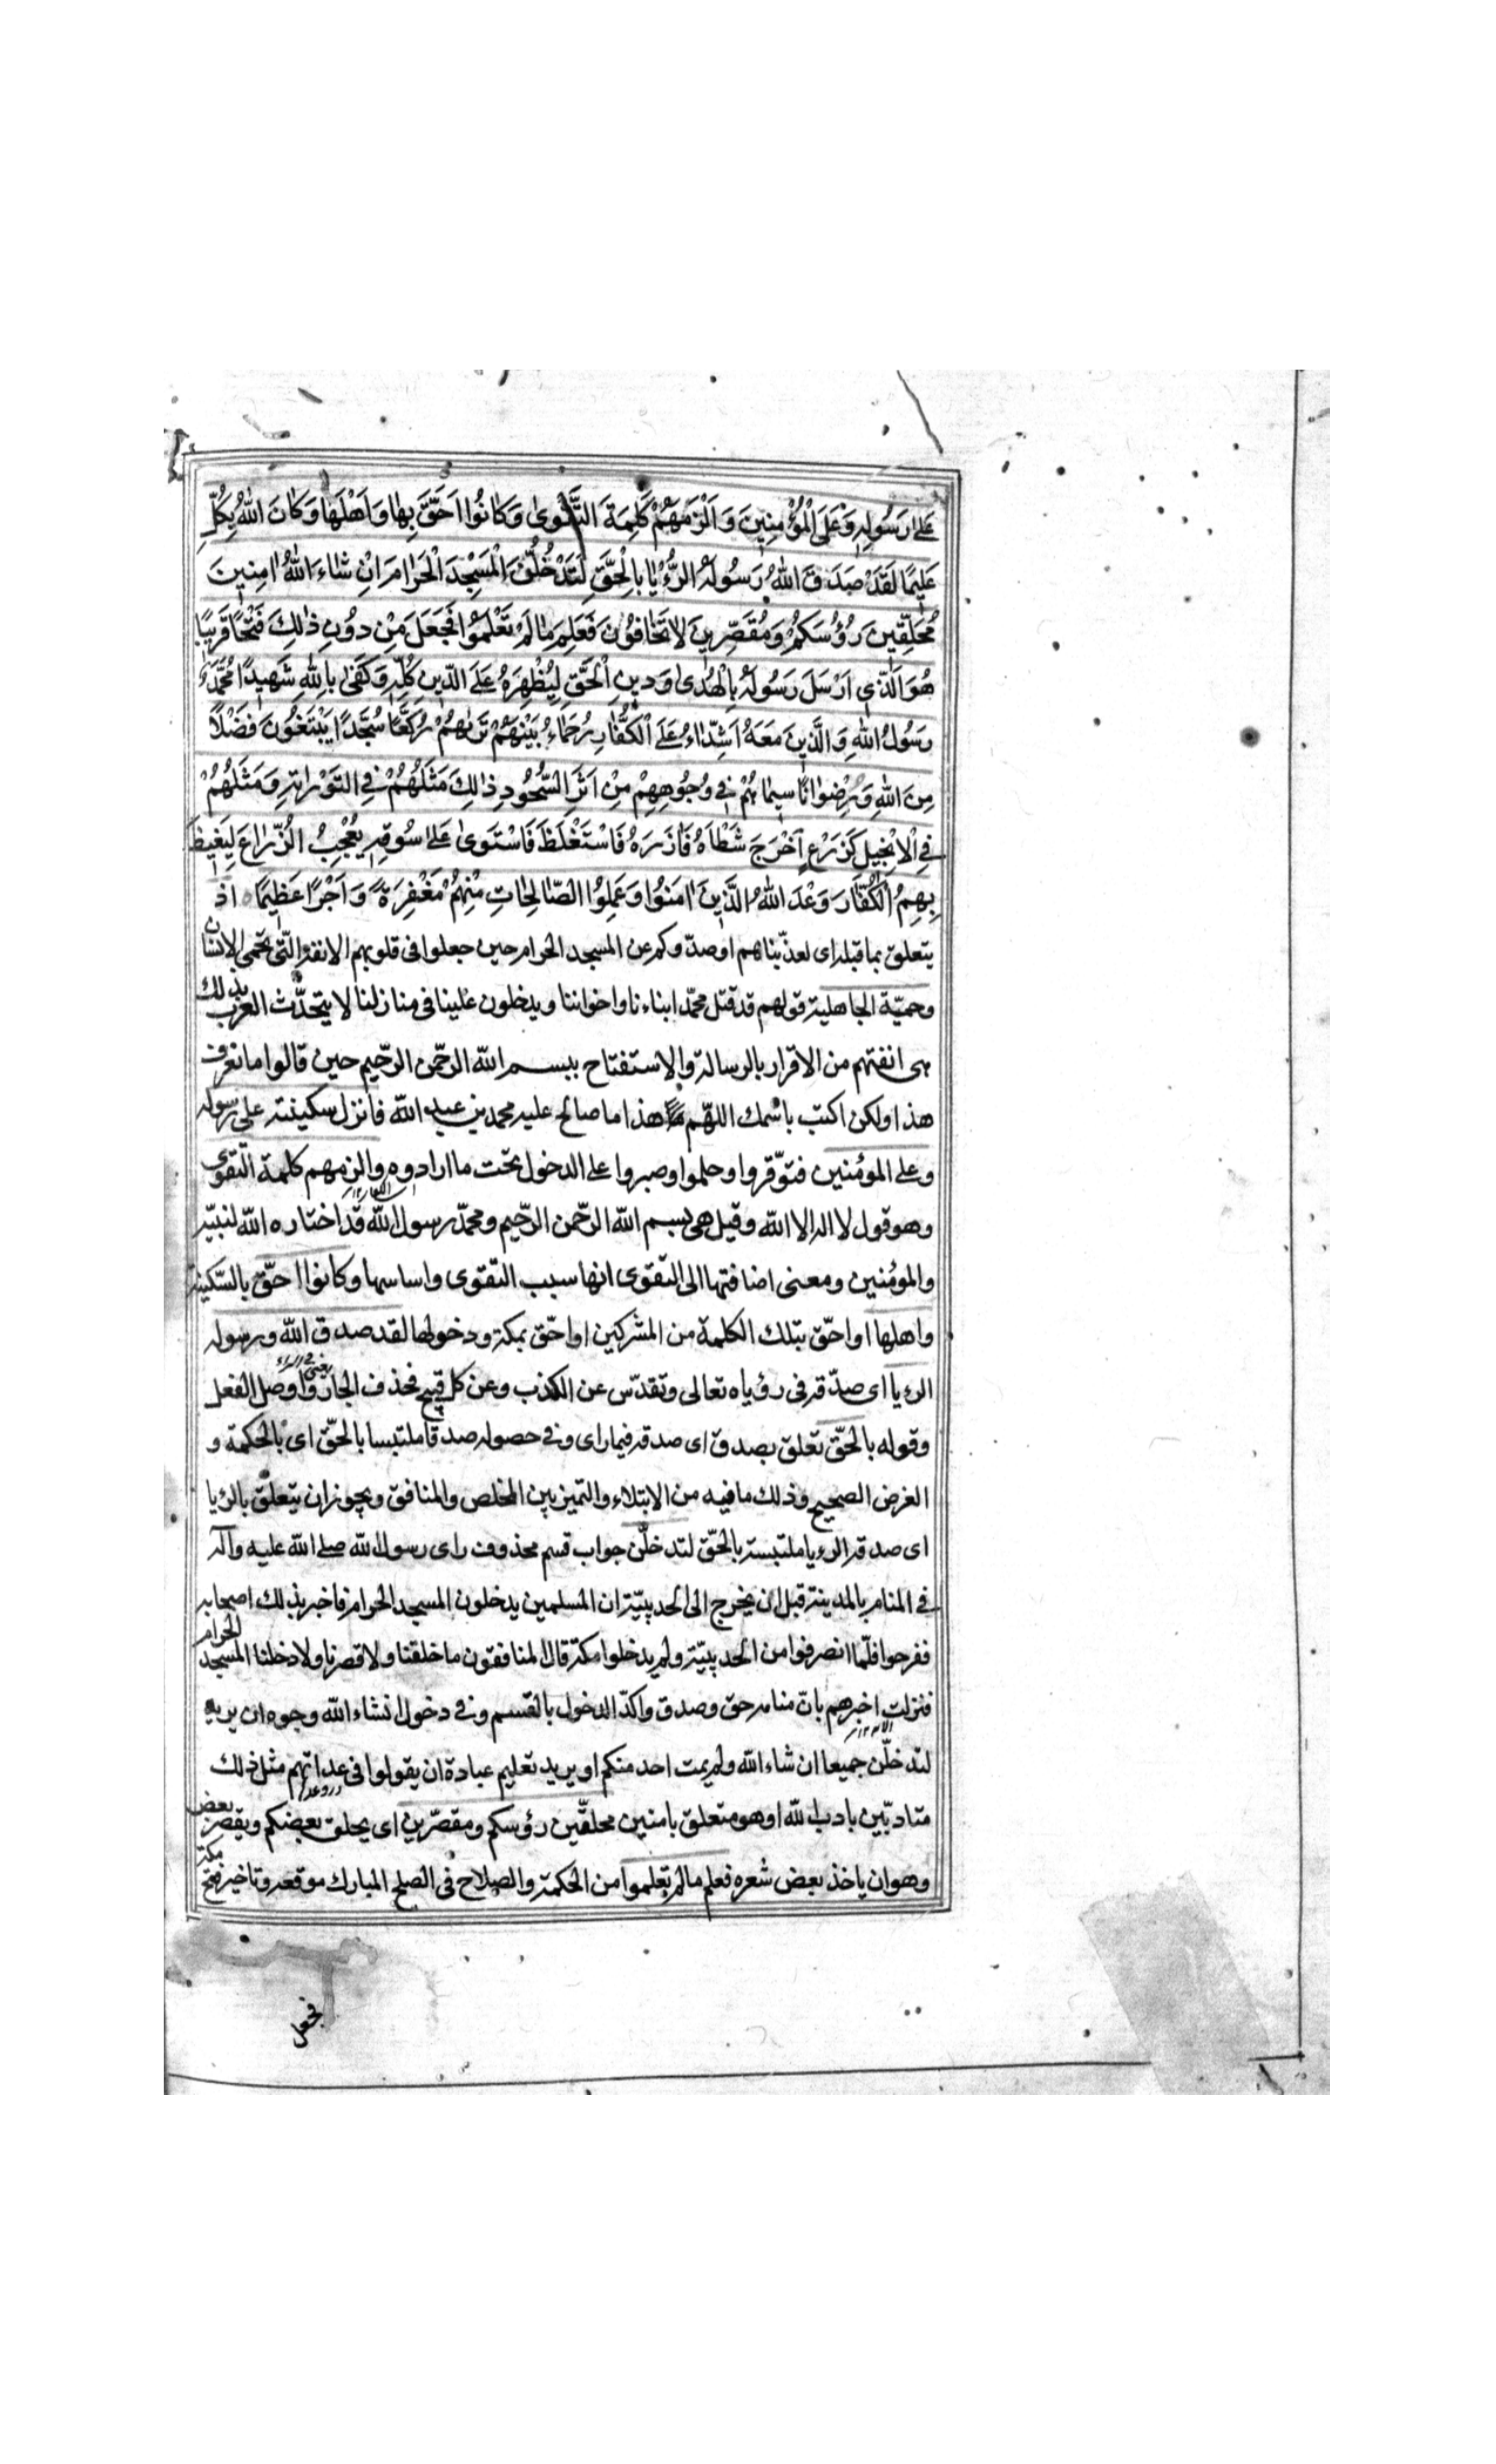 عَلٰى رَسُولِهِ وَعَلَى الْمُؤْمِنِينَ وَاَلْزَمَهُمْ كَلِمَةَ التَّقْوٰى وَكَانُوا اَحَقَّ بِهَا وَاَهْلَهَا وَكَانَ اللّٰهُ بِكُلِّ
عَلِيمًا لَقَدْ صَدَقَ اللّٰهُ رَسُولَهُ الرُّءْيَا بِالْحَقِّ لَتَدْخُلُنَّ الْمَسْجِدَ الْحَرَامَ اِنْ شَاءَ اللّٰهُ اٰمِنِينَ
مُحَلِّقِينَ رُؤُسَكُمْ وَمُقَصِّرِينَ لَا تَخَافُونَ فَعَلِمَ مَا لَمْ تَعْلَمُوا فَجَعَلَ مِنْ دُونِ ذٰلِكَ فَتْحًا قَرِيبًا
هُوَ الَّذِي اَرْسَلَ رَسُولَهُ بِالْهُدٰى وَدِينِ الْحَقِّ لِيُظْهِرَهُ عَلَى الدِّينِ كُلِّهِ وَكَفٰى بِاللّٰهِ شَهِيدًا مُحَمَّدٌ
رَسُولُ اللّٰهِ وَالَّذِينَ مَعَهُ اَشِدَّاءُ عَلَى الْكُفَّارِ رُحَمَاءُ بَيْنَهُمْ تَرٰيهُمْ رُكَّعًا سُجَّدًا يَبْتَغُونَ فَضْلًا
مِنَ اللّٰهِ وَرِضْوَانًا سِيمَاهُمْ فِي وُجُوهِهِمْ مِنْ اَثَرِ السُّجُودِ ذٰلِكَ مَثَلُهُمْ فِي التَّوْرٰيةِ وَمَثَلُهُمْ
فِي الْاِنْجِيلِ كَزَرْعٍ اَخْرَجَ شَطْاَهُ فَاٰزَرَهُ فَاسْتَغْلَظَ فَاسْتَوٰى عَلٰى سُوقِهِ يُعْجِبُ الزُّرَّاعَ لِيَغِيظَ
بِهِمُ الْكُفَّارَ وَعَدَ اللّٰهُ الَّذِينَ اٰمَنُوا وَعَمِلُوا الصَّالِحَاتِ مِنْهُمْ مَغْفِرَةً وَاَجْرًا عَظِيمًا ٥ اذ
يتعلق بما قبله اى لعذّبناهم او صدّوكم عن المسجد الحرام حين جعلوا فى قلوبهم الانفة الّتى تحمى الانسان
وحميّة الجاهلية قولهم قد قتل محمّد ابناءنا واخواننا ويدخلون علينا فى منازلنا لا يتحدّث العرب بذلك
هى انفتهم من الاقرار بالرسالة والاستفتاح ببسم الله الرحمن الرحيم حين قالوا ما نعرف
هذا ولكن اكتب باسمك اللهّم هذا ما صالح عليه محمد بن عبد الله فانزل سكينته على رسوله
وعلى المؤمنين فتوّقروا وحلموا وصبروا على الدخول تحت ما ارادوه والزمهم كلمة التّقوى
وهو قول لا اله الا الله وقيل هى بسم الله الرحمن الرحيم ومحمّد رسول الله قد اختاره الله لنبيّه
والمؤمنين ومعنى اضافتها الى التقوى انها سبب التقوى واساسها وكانوا احقّ بالسّكينة
واهلها او احّق بتلك الكلمة من المشركين او احّق بمكة ودخولها لقد صدق الله ورسوله
الرءيا اى صدّقه فى رؤياه تعالى وتقدّس عن الكذب وعن كل قبيح فحذف الجار واوصل الفعل
وقوله بالحّق تعلق بصدق اى صدقه فيما راى وفى حصوله صدقا ملتبسا بالحّق اى بالحكمة و
الغرض الصحيح وذلك ما فيه من الابتلاء والتميز بين المخلص والمنافق ويجوز ان يتعلّق بالرءيا
اى صدقه الرءيا ملتبسة بالحّق لتدخلّن جواب قسم محذوف راى رسول الله صلى الله عليه وآله
فى المنام بالمدينة قبل ان يخرج الى الحديبيّة ان المسلمين يدخلون المسجد الحرام فاخبر بذلك اصحابه
ففرحوا فلّما انصرفوا من الحديبيّة ولم يدخلوا مكة قال المنافقون ما خلقنا ولا قصرنا ولا دخلنا المسجد الحرام
فنزلت اخبرهم بانّ منامه حق وصدق واكدّ الدخول بالقسم وفى دخول انشاء الله وجوه ان يريد
لتدخلّن جميعا ان شاء الله ولم يمت احد منكم او يريد تعليم عباده ان يقولوا فى عداتهم مثل ذلك
متادبّين بادب الله او هو متعلق بامنين محلقّين رؤسكم ومقصّرين اى يحلق بعضكم ويقصر بعض
وهو ان ياخذ بعض شعره فعلم ما لم تعلموا من الحكمة والصلاح فى الصلح المبارك موقعه وتاخير فتح مكة
فجعل